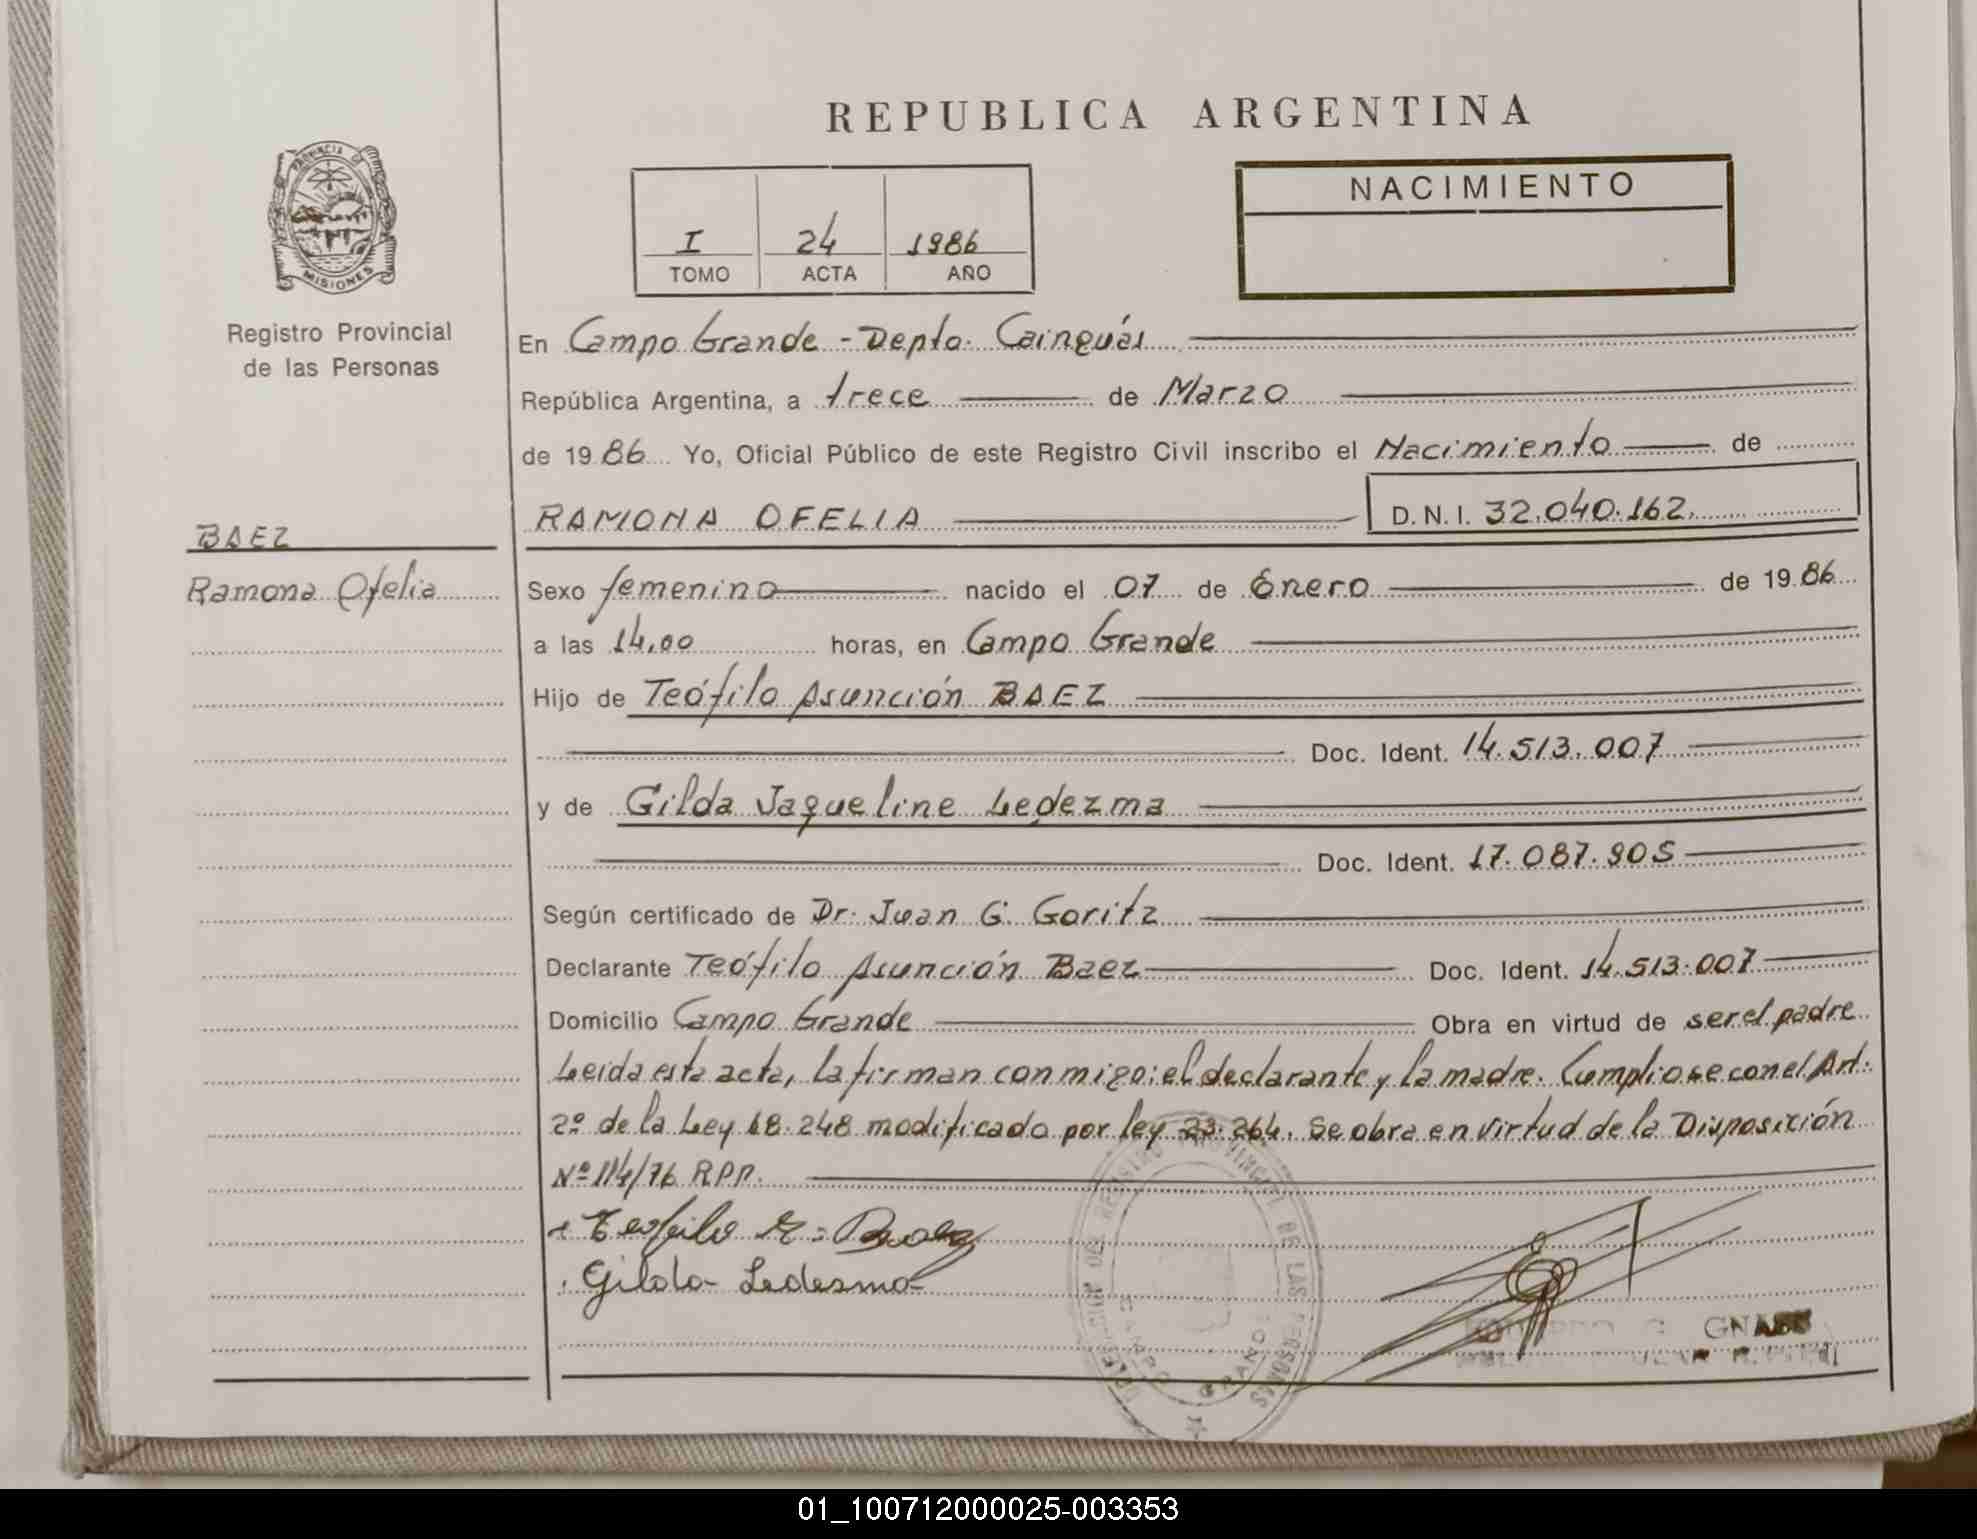 REPUBLICA ARGENTINA
PROVINCIA DE
MISIONES
Registro Provincial
de las Personas
NACIMIENTO
I 24 1986
TOMO ACTA AÑO
En Campo Grande - Depto. Cainguás
República Argentina, a trece de Marzo
de 1986 Yo, Oficial Público de este Registro Civil inscribo el Nacimiento de
RAMONA OFELIA D.N.I. 32.040.162.
BAEZ
Ramona Ofelia
Sexo femenino nacido el 07 de Enero de 1986
a las 14,00 horas, en Campo Grande
Hijo de Teófilo Asunción BAEZ
Doc. Ident. 14.513.007
y de Gilda Jaqueline Ledezma
Doc. Ident. 17.087.905
Según certificado de Dr. Juan G. Goritz
Declarante Teófilo Asunción Baez Doc. Ident. 14.513.007
Domicilio Campo Grande Obra en virtud de ser el padre
Leida esta acta, la firman conmigo: el declarante y la madre. Cumpliose con el Art.
2º de la Ley 18.248 modificado por ley 23.264. Se obra en virtud de la Disposición
Nº 114/76 R.P.P.
Teofilo Baez
Gilda Ledesma
DEL REGISTRO PROVINCIAL DE LAS PERSONAS
CAMPO GRANDE
G. GNASS
01_100712000025-003353